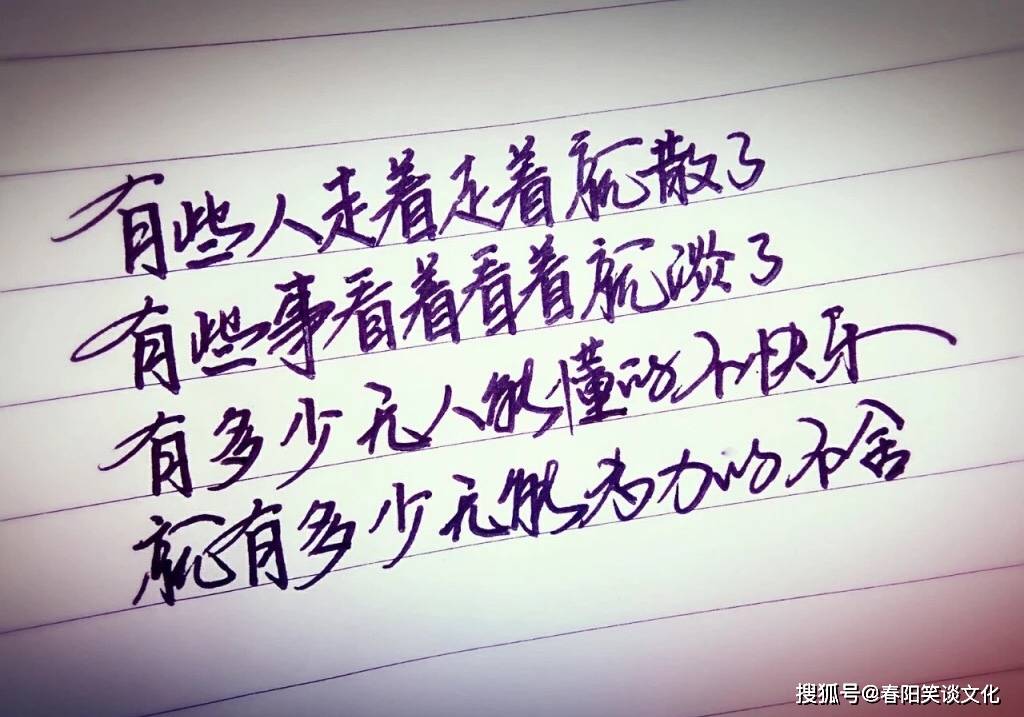 有些人走着走着就散了
有些事看着看着就淡了
有多少无人能懂的不快乐
就有多少无能为力的不舍
搜狐号@春阳笑谈文化